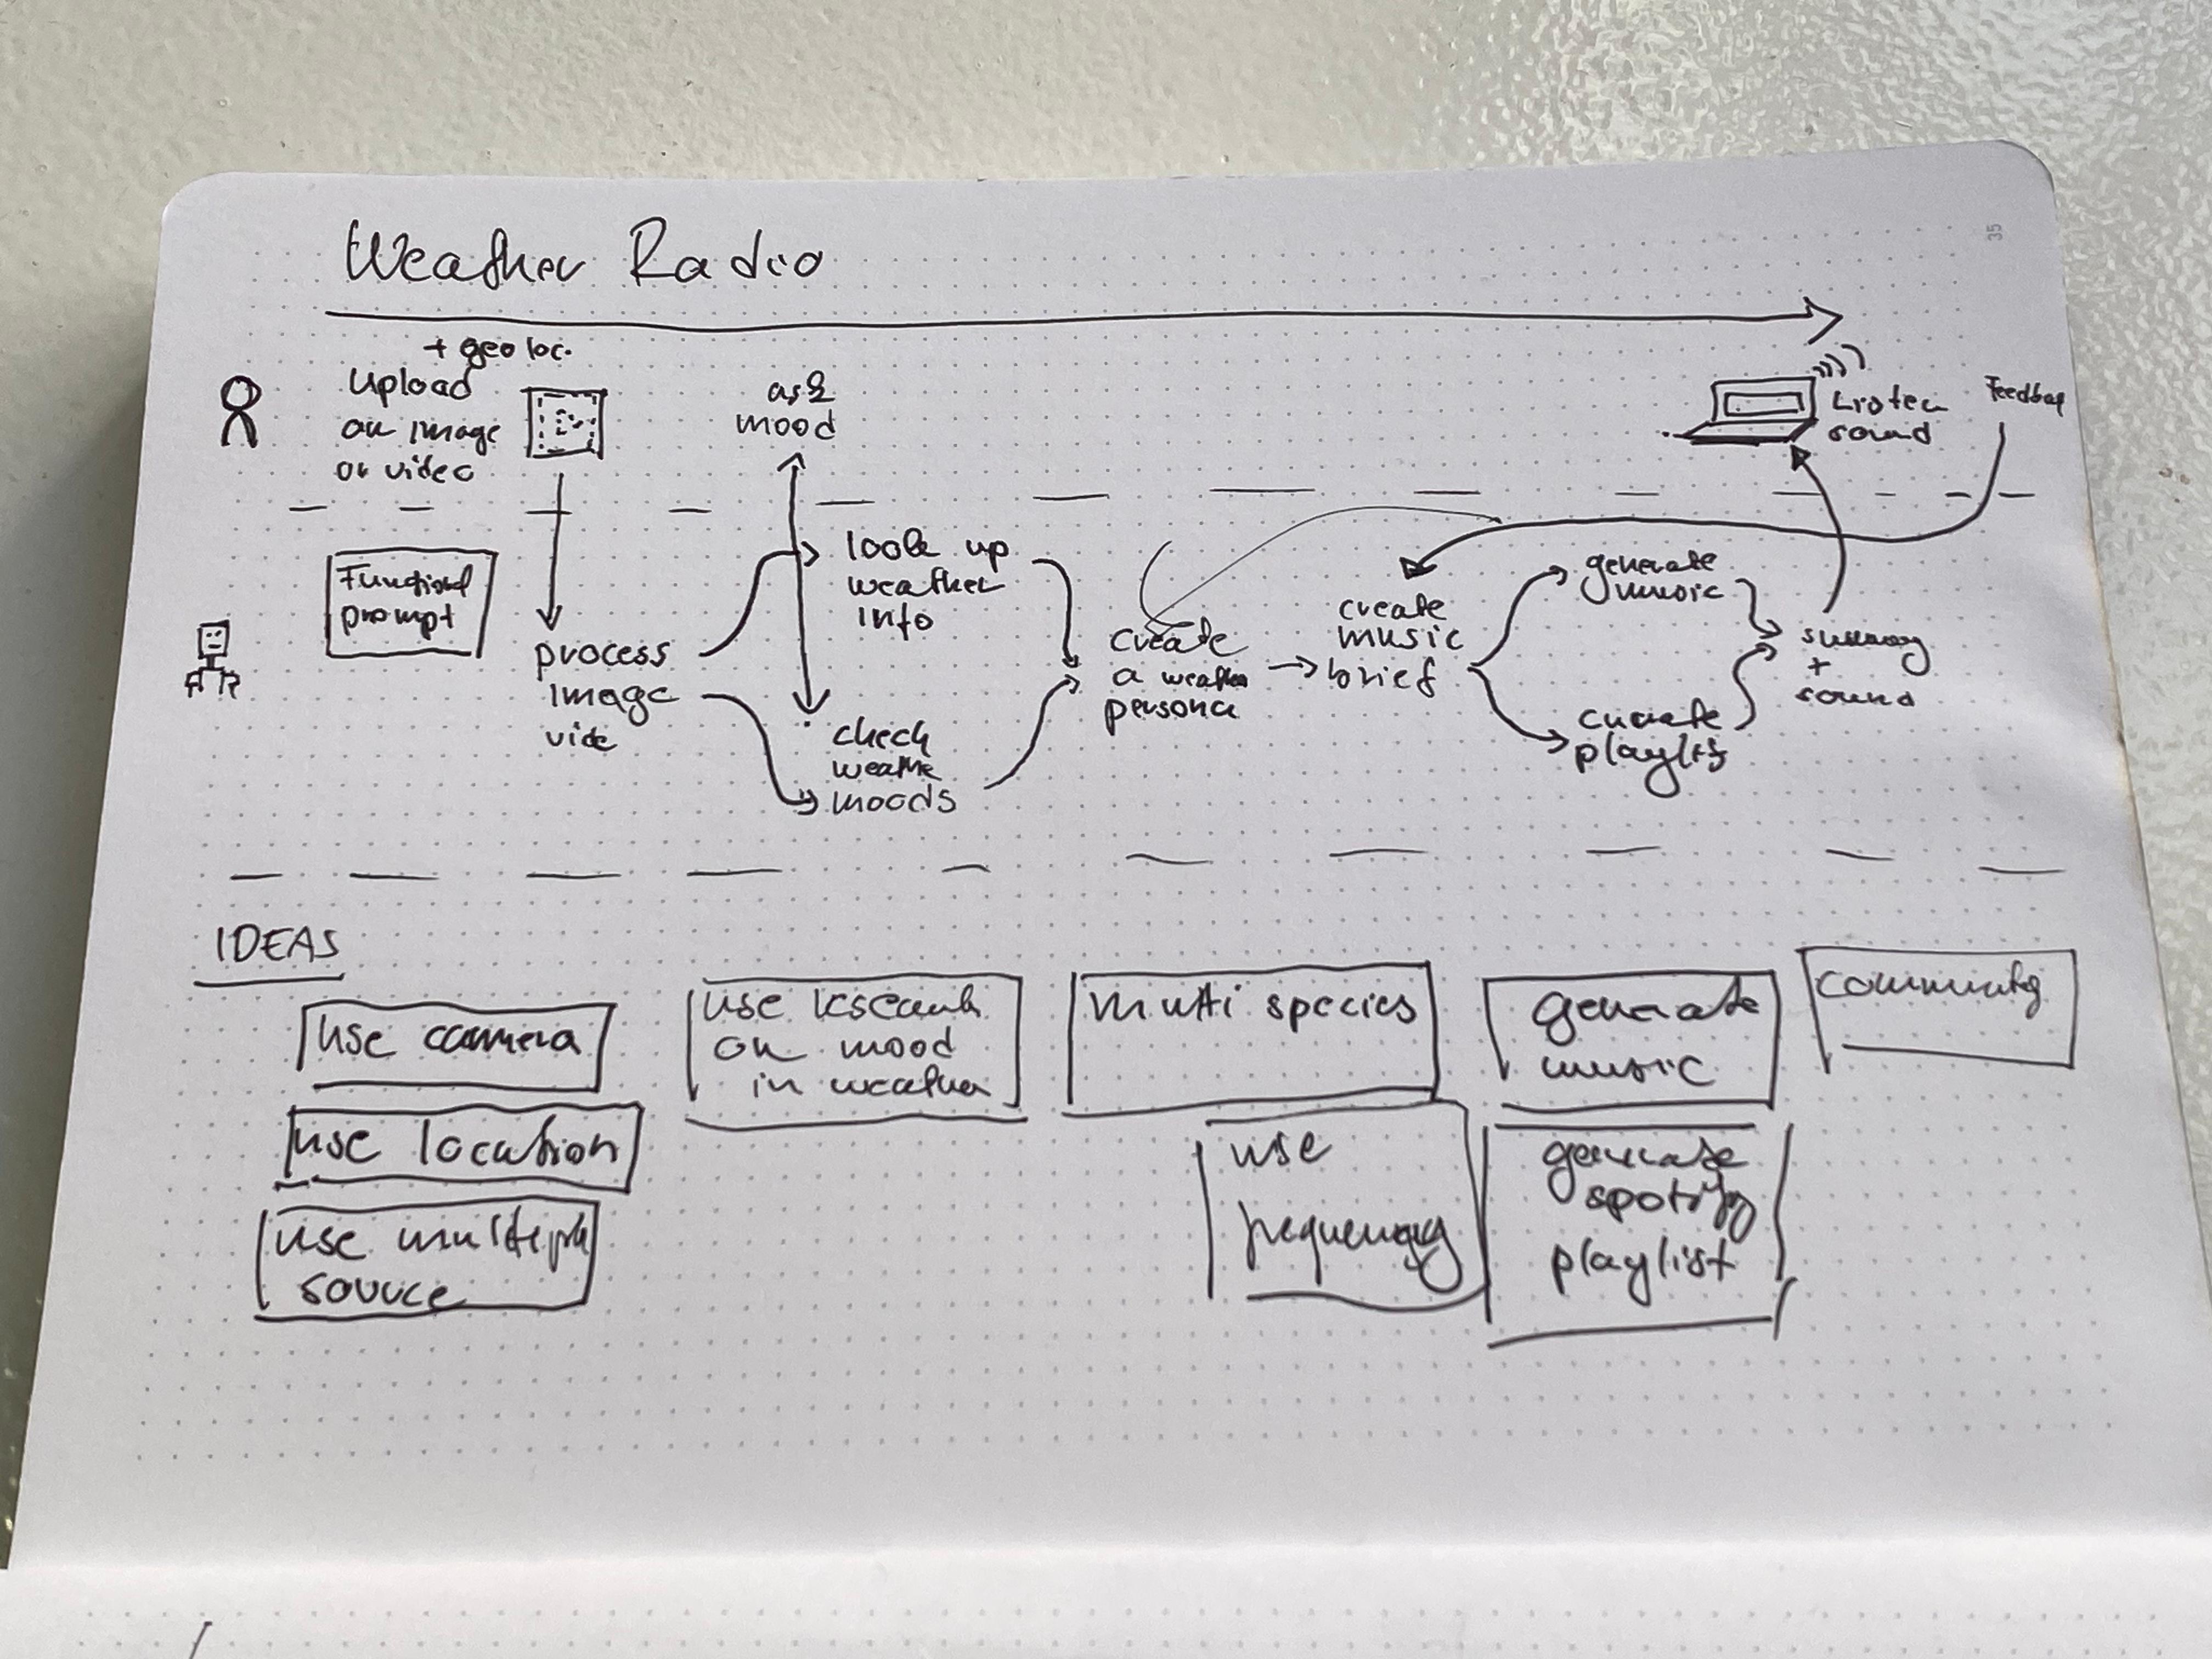 Weather Radio
+ geo loc.
Upload
an image
or video
ask
mood
Listen
sound
Feedbac
Functional
prompt
process
image
vide
look up
weather
info
check
weathe
moods
create
a weather
persona
create
music
brief
generate
music
curate
playlist
summary
+
sound
IDEAS
use camera
use location
use multiple
source
use research
on mood
in weather
multi species
use
frequency
generate
music
generate
spotify
playlist
community
35